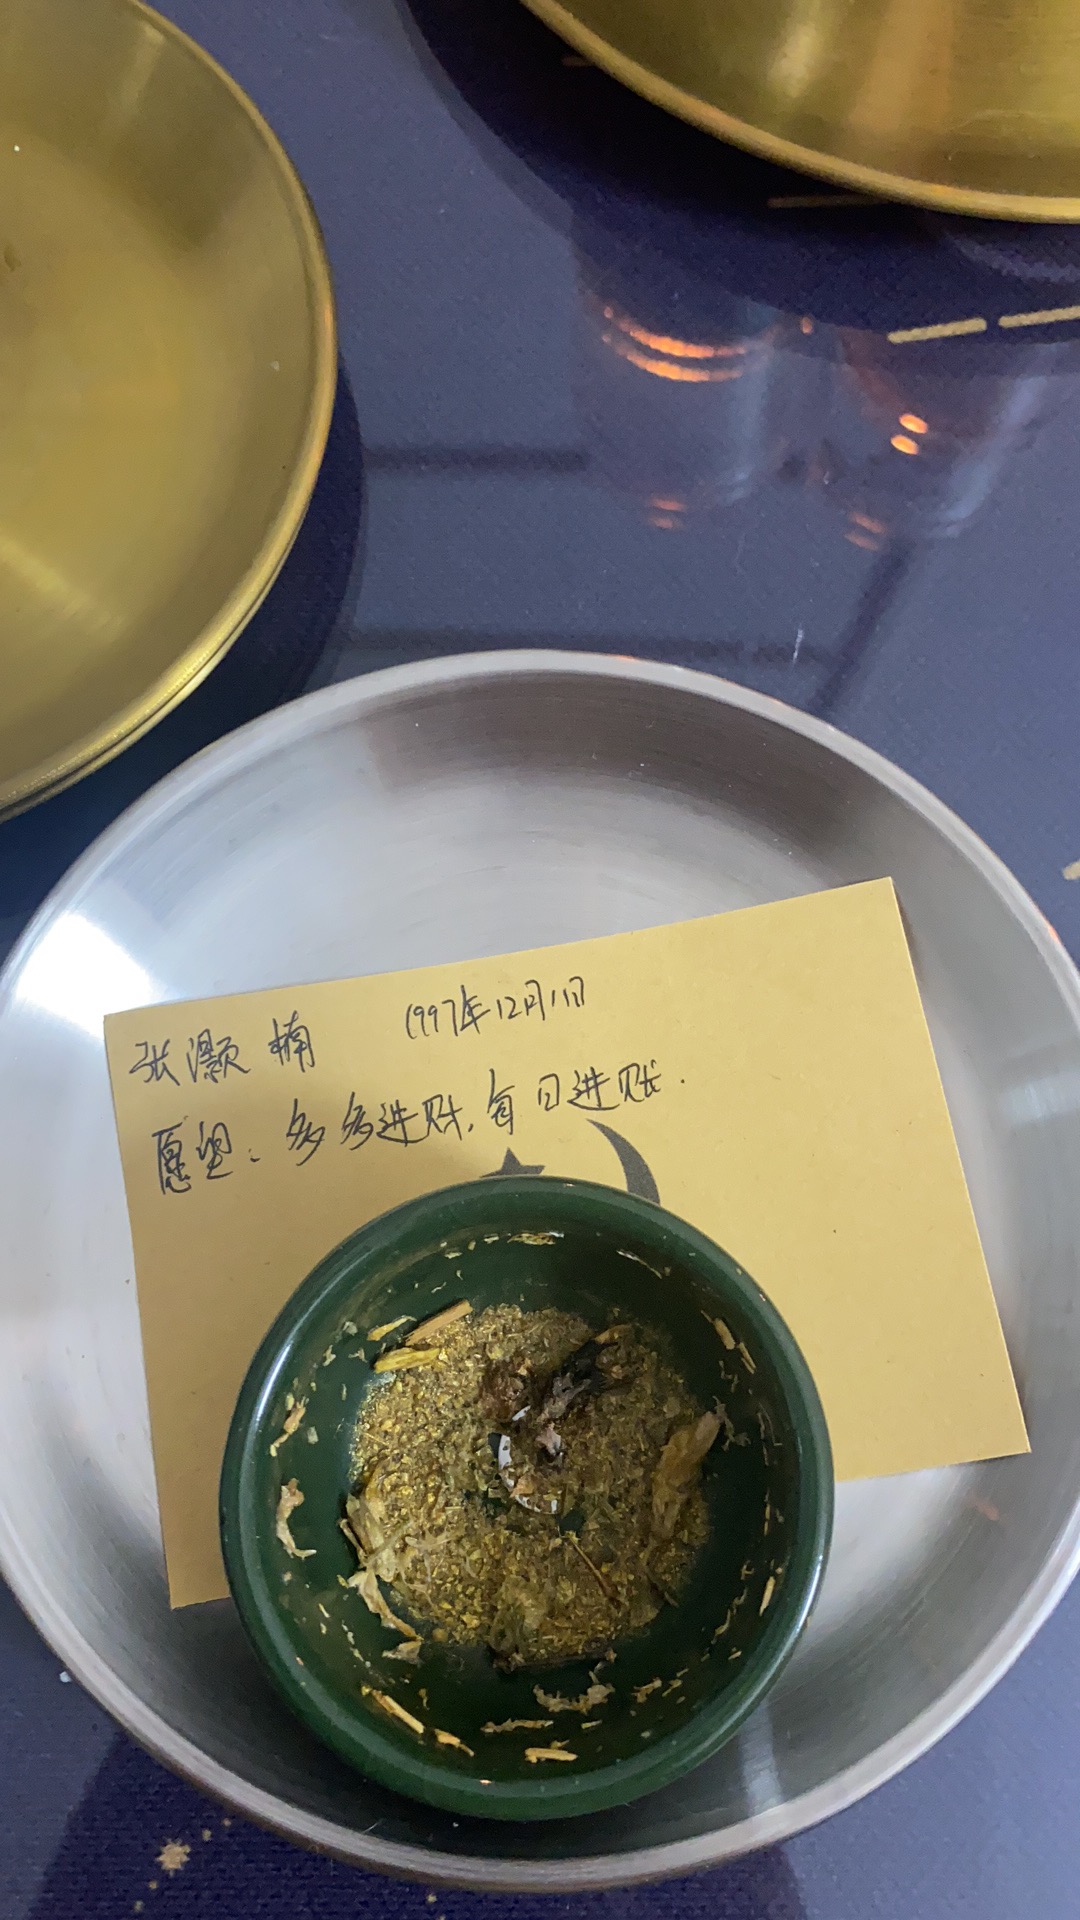 张灏楠 1997年12月11日
愿望：多多进账，每日进账.